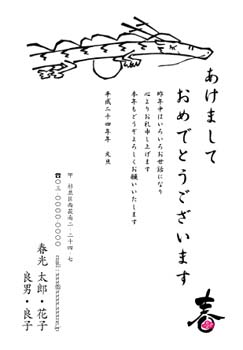 あけまして
おめでとうございます
昨年中はいろいろお世話になり
心よりお礼申し上げます
本年もどうぞよろしくお願いいたします
平成二十四年 元旦
〒 杉並区西荻南二-二十四-七
☎〇三-〇〇〇〇-〇〇〇〇
春光 太郎・花子
良男・良子
春